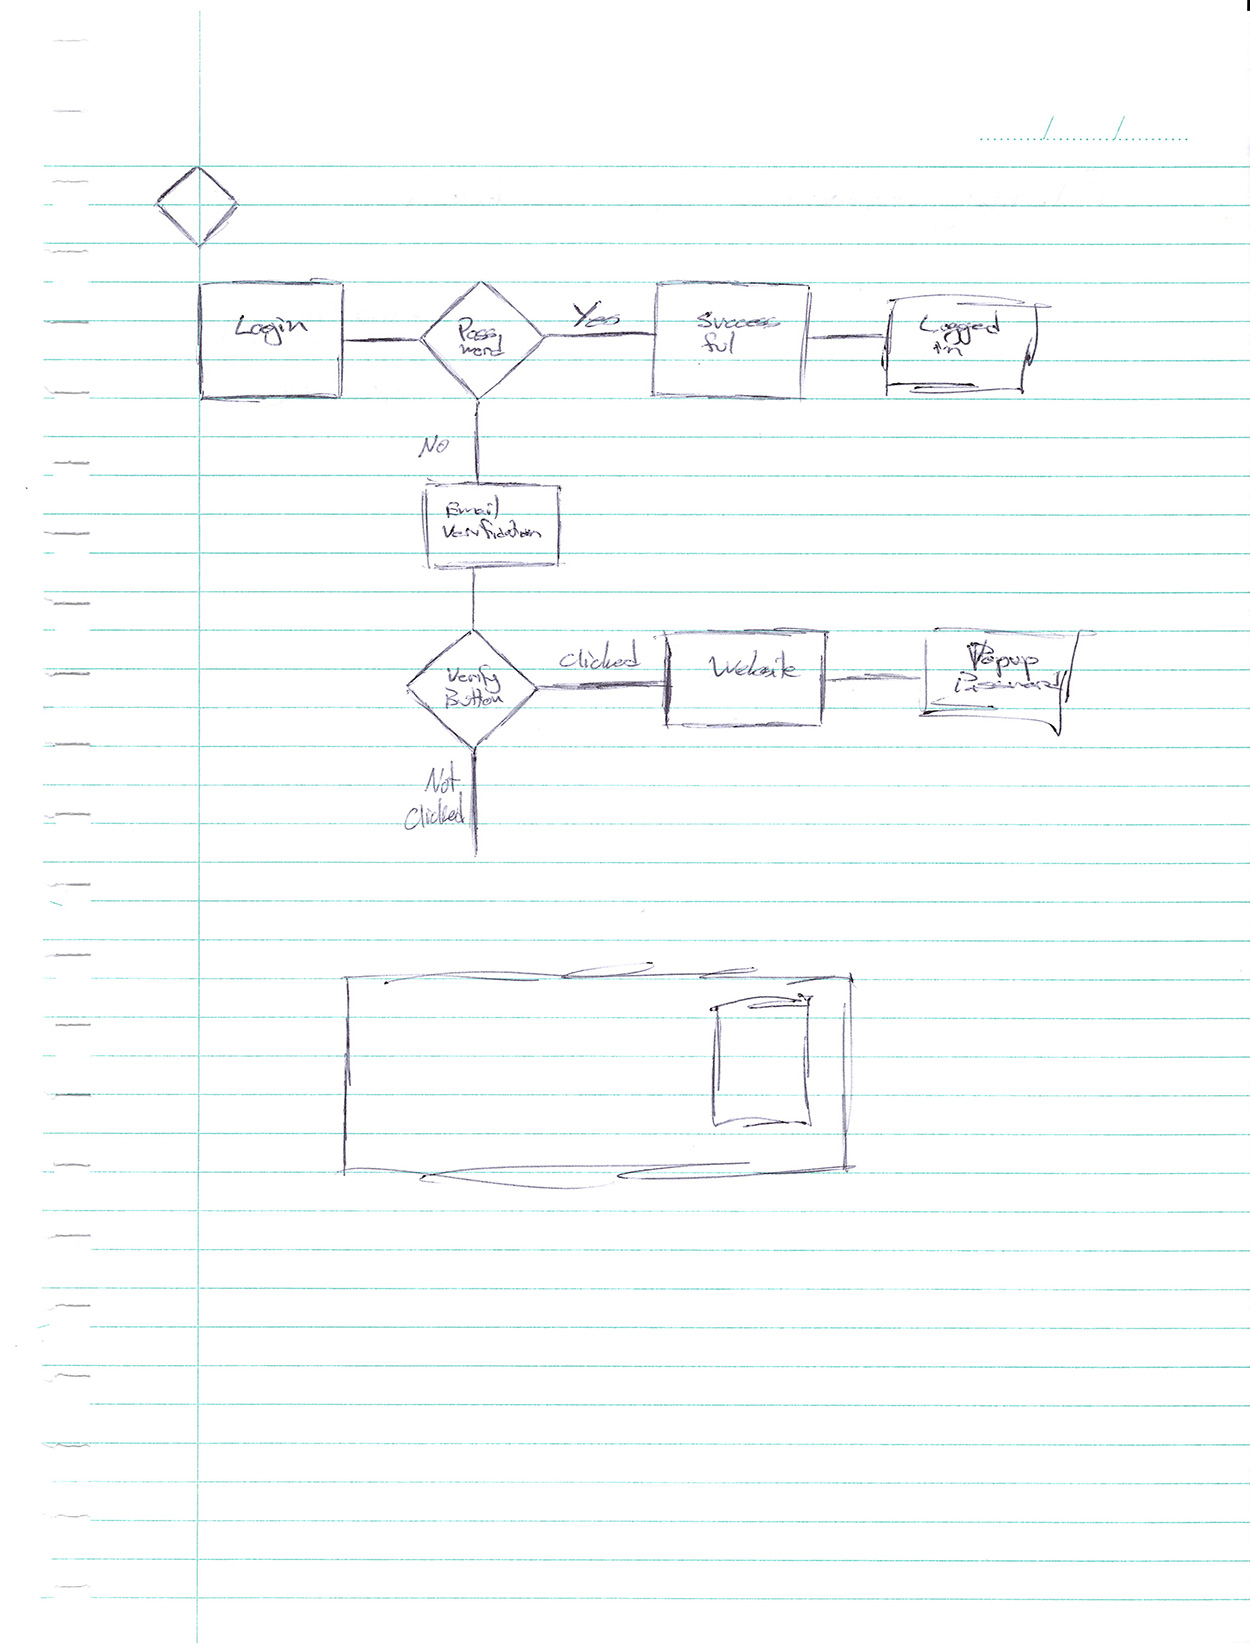 Login
Pass
word
Yes
Success
ful
Logged
in
No
Email
Verification
Verify
Button
clicked
Website
Popup
Password
Not
Clicked